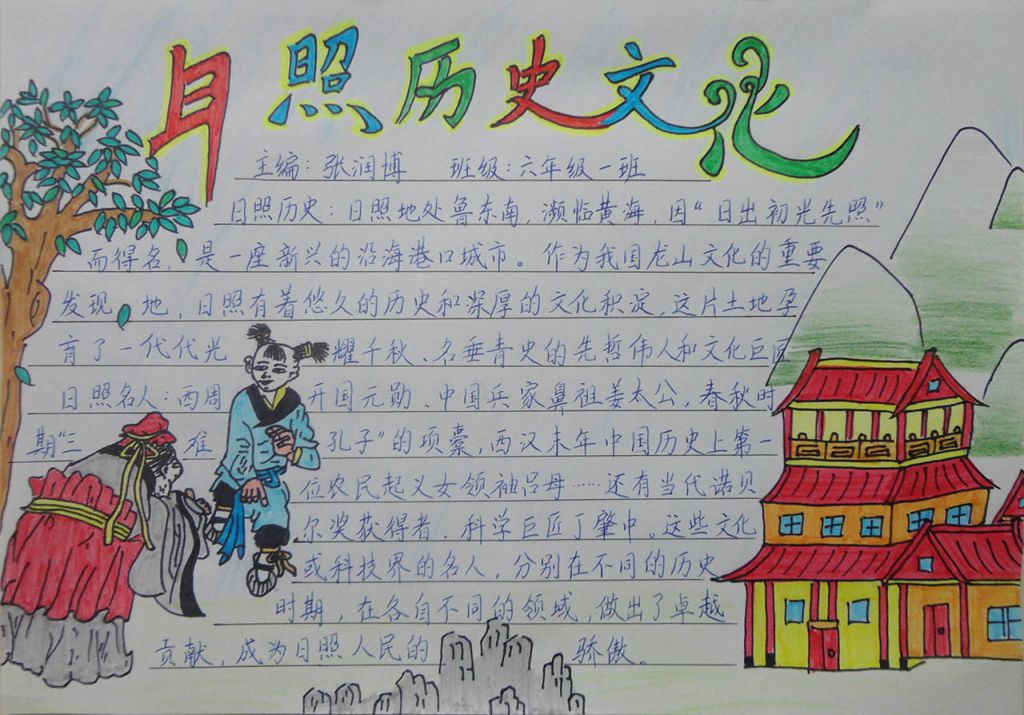 日照历史文化
主编：张润博 班级：六年级一班
日照历史：日照地处鲁东南，濒临黄海，因“日出初光先照”
而得名，是一座新兴的沿海港口城市。作为我国龙山文化的重要
发现 地，日照有着悠久的历史和深厚的文化积淀，这片土地孕
育了一代代光 耀千秋、名垂青史的先哲伟人和文化巨匠
日照名人：西周 开国元勋、中国兵家鼻祖姜太公，春秋时
期“三 难 孔子”的项橐，西汉末年中国历史上第一
位农民起义女领袖吕母……还有当代诺贝
尔奖获得者、科学巨匠丁肇中。这些文化
或科技界的名人，分别在不同的历史
时期，在各自不同的领域，做出了卓越
贡献，成为日照人民的 骄傲。